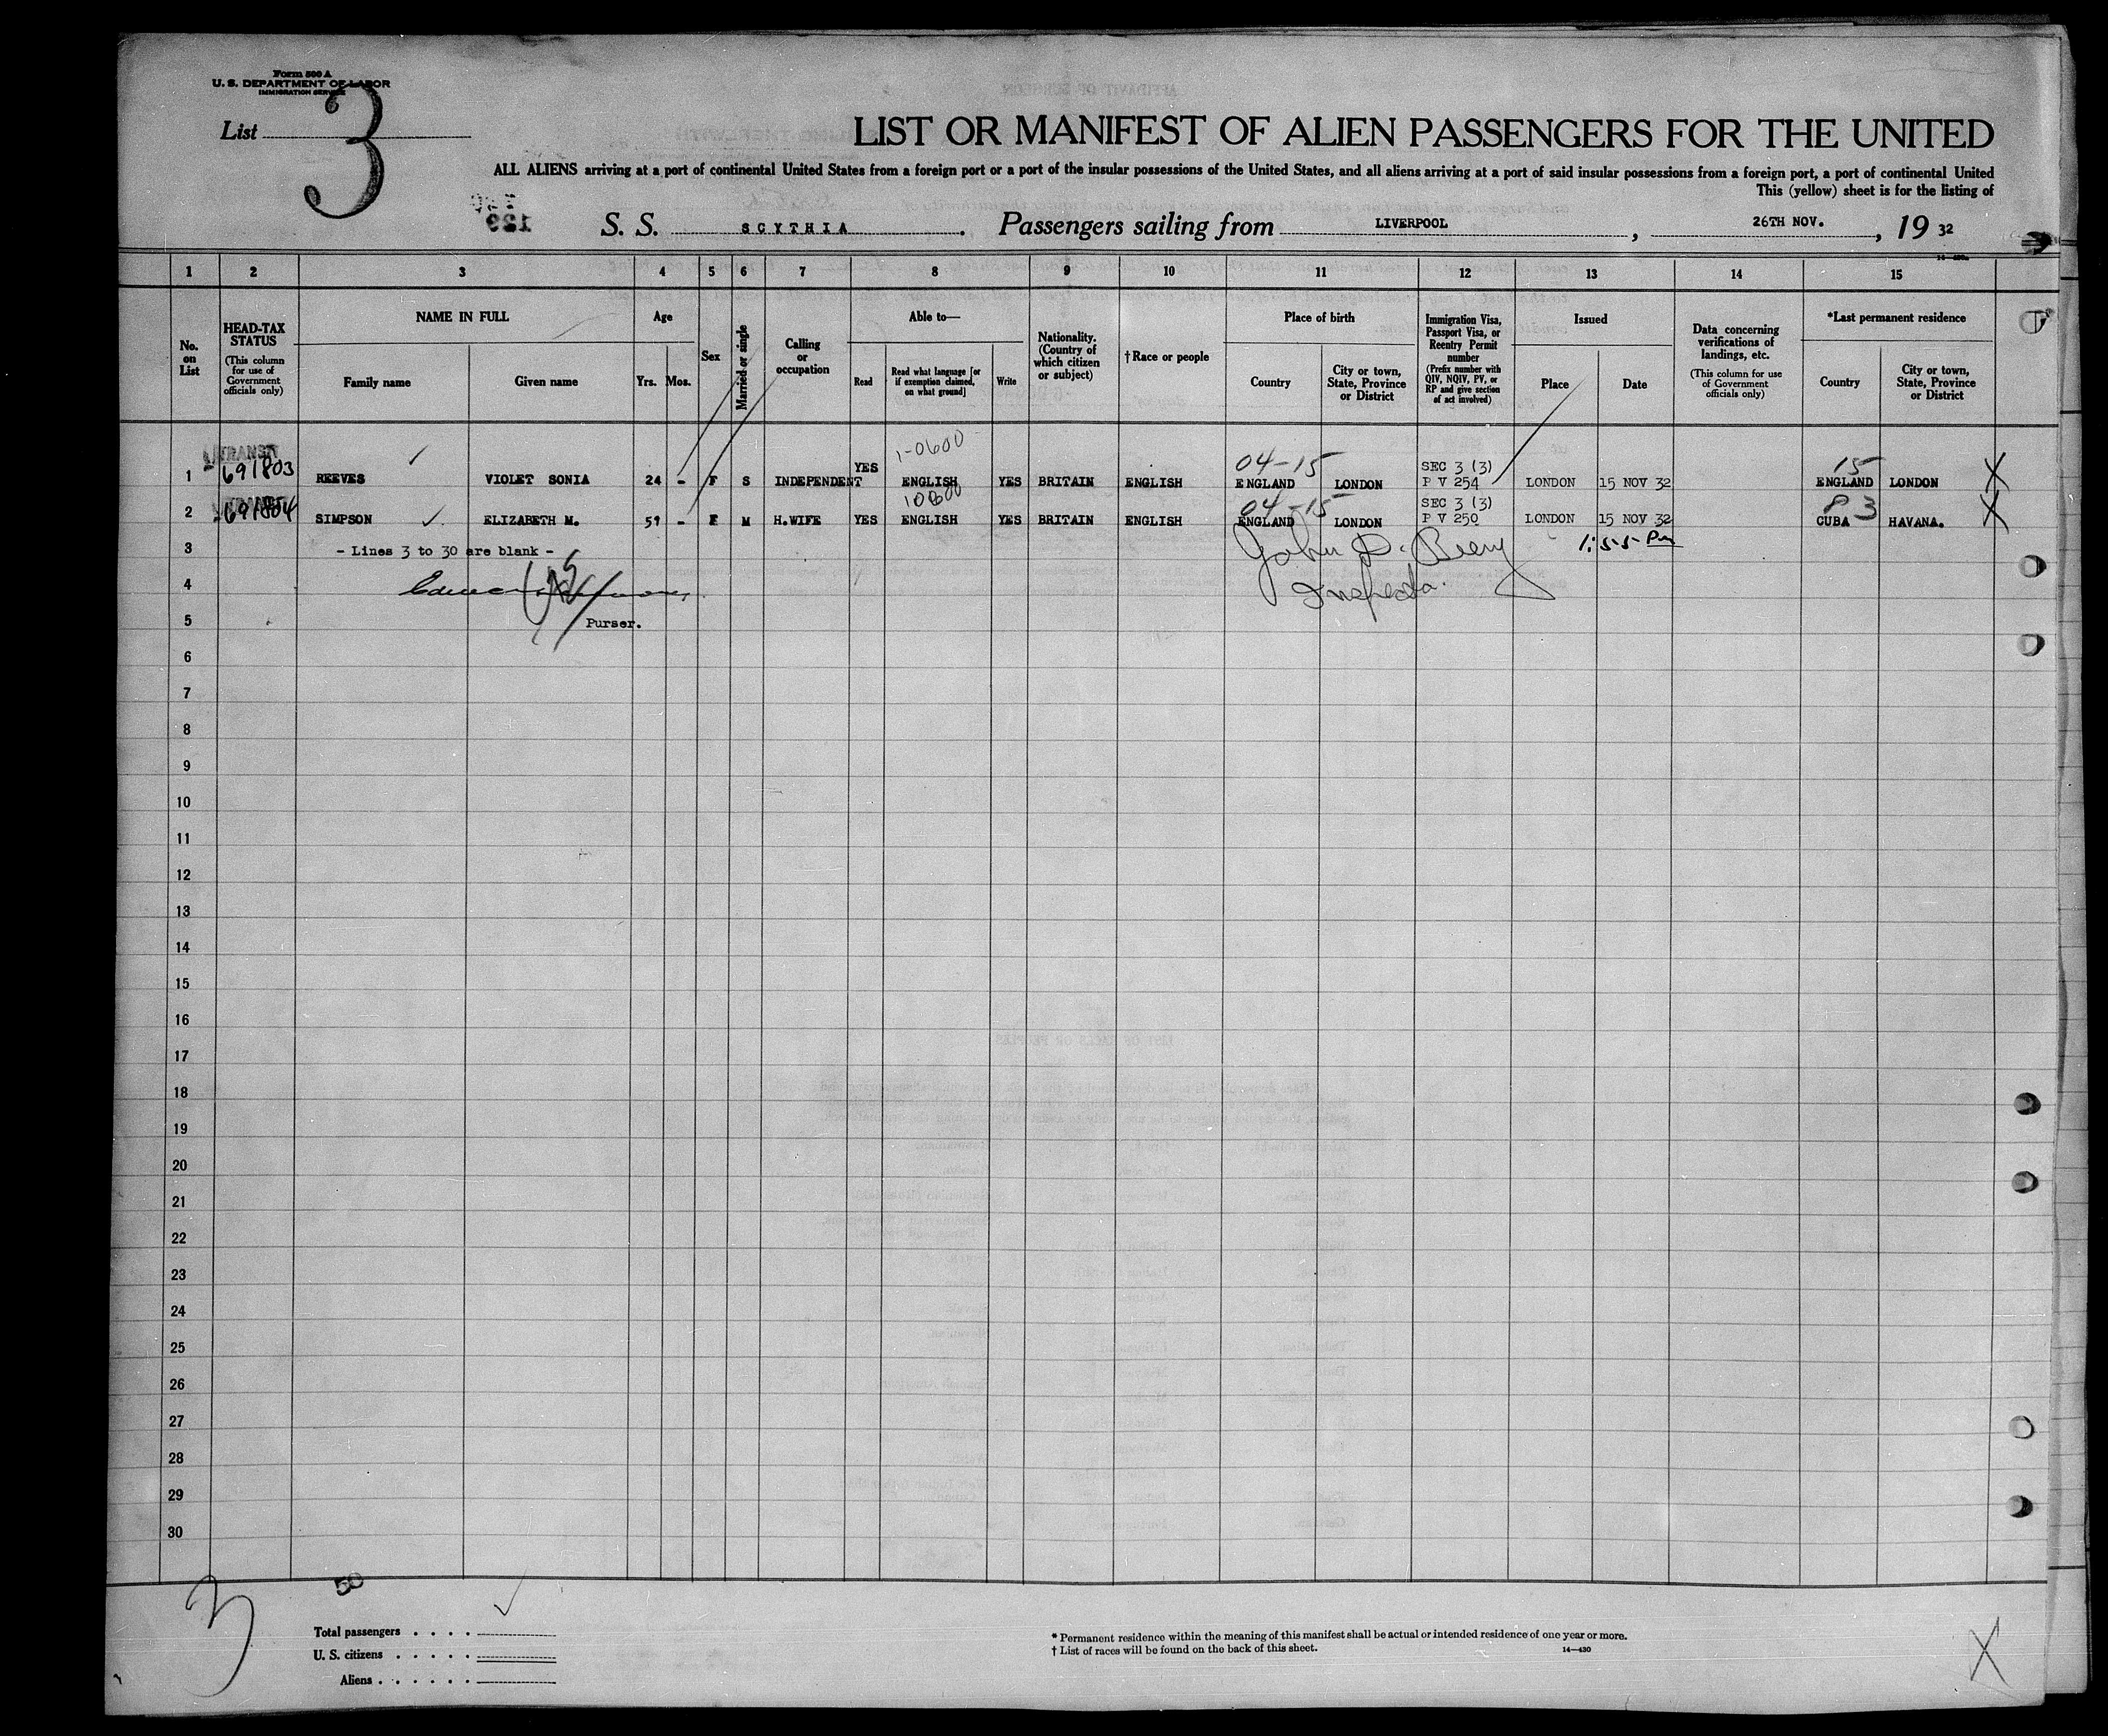 Form 500 A
U. S. DEPARTMENT OF LABOR
IMMIGRATION SERVICE
List 3
LIST OR MANIFEST OF ALIEN PASSENGERS FOR THE UNITED
ALL ALIENS arriving at a port of continental United States from a foreign port or a port of the insular possessions of the United States, and all aliens arriving at a port of said insular possessions from a foreign port, a port of continental United
This (yellow) sheet is for the listing of
S. S. SCYTHIA. Passengers sailing from LIVERPOOL, 26TH NOV., 19 32
1 2 3 4 5 6 7 8 9 10 11 12 13 14 15
No. on List
HEAD-TAX STATUS (This column for use of Government officials only)
NAME IN FULL
Family name
Given name
Age
Yrs. Mos.
Sex
Married or single
Calling or occupation
Able to—
Read
Read what language [or if exemption claimed, on what ground]
Write
Nationality. (Country of which citizen or subject)
†Race or people
Place of birth
Country
City or town, State, Province or District
Immigration Visa, Passport Visa, or Reentry Permit number (Prefix number with QIV, NQIV, PV, or RP and give section of act involved)
Issued
Place
Date
Data concerning verifications of landings, etc. (This column for use of Government officials only)
*Last permanent residence
Country
City or town, State, Province or District
TRANSIT 1-0600 04-15 SEC 3 (3) 15
1 691803 REEVES VIOLET SONIA 24 - F S INDEPENDENT YES ENGLISH YES BRITAIN ENGLISH ENGLAND LONDON P V 254 LONDON 15 NOV 32 ENGLAND LONDON X
TRANSIT 10600 04-15 SEC 3 (3) 83
2 691804 SIMPSON ELIZABETH M. 51 - F M H.WIFE YES ENGLISH YES BRITAIN ENGLISH ENGLAND LONDON P V 250 LONDON 15 NOV 32 CUBA HAVANA. X
3 - Lines 3 to 30 are blank - John D. 1:55 Pm
4 Inspector.
5 Purser.
6
7
8
9
10
11
12
13
14
15
16
17
18
19
20
21
22
23
24
25
26
27
28
29
30
3 50
Total passengers
U. S. citizens
Aliens
* Permanent residence within the meaning of this manifest shall be actual or intended residence of one year or more.
† List of races will be found on the back of this sheet. 14—430
X